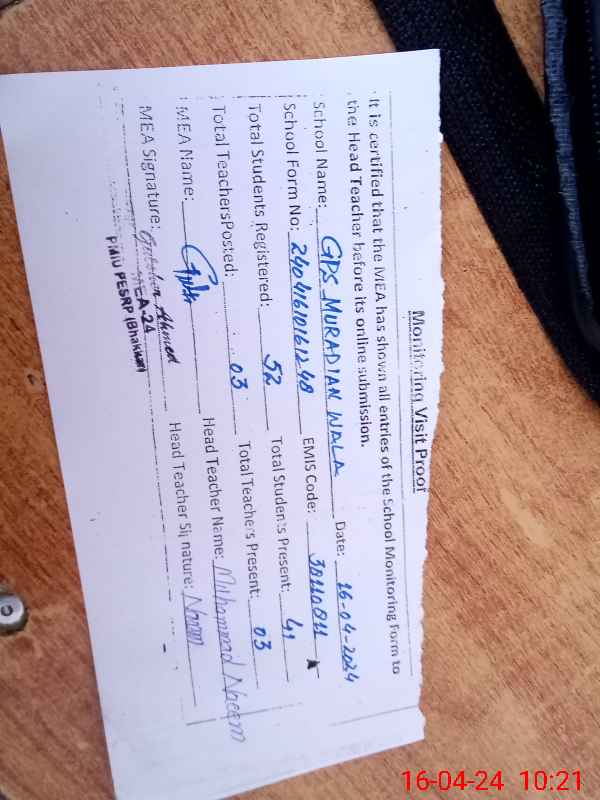 Monitoring Visit Proof
It is certified that the MEA has shown all entries of the School Monitoring Form to
the Head Teacher before its online submission.
School Name: GPS MURADIAN WALA Date: 16-04-2024
School Form No: EMIS Code:
Total Students Registered: 52 Total Students Present: 41
Total TeachersPosted: 03 Total Teachers Present: 03
MEA Name: Head Teacher Name: Muhammad Naeem
MEA Signature: Ahmed Head Teacher Signature: Naeem
MEA-24
PMIU PESRP (Bhakkar)
16-04-24 10:21